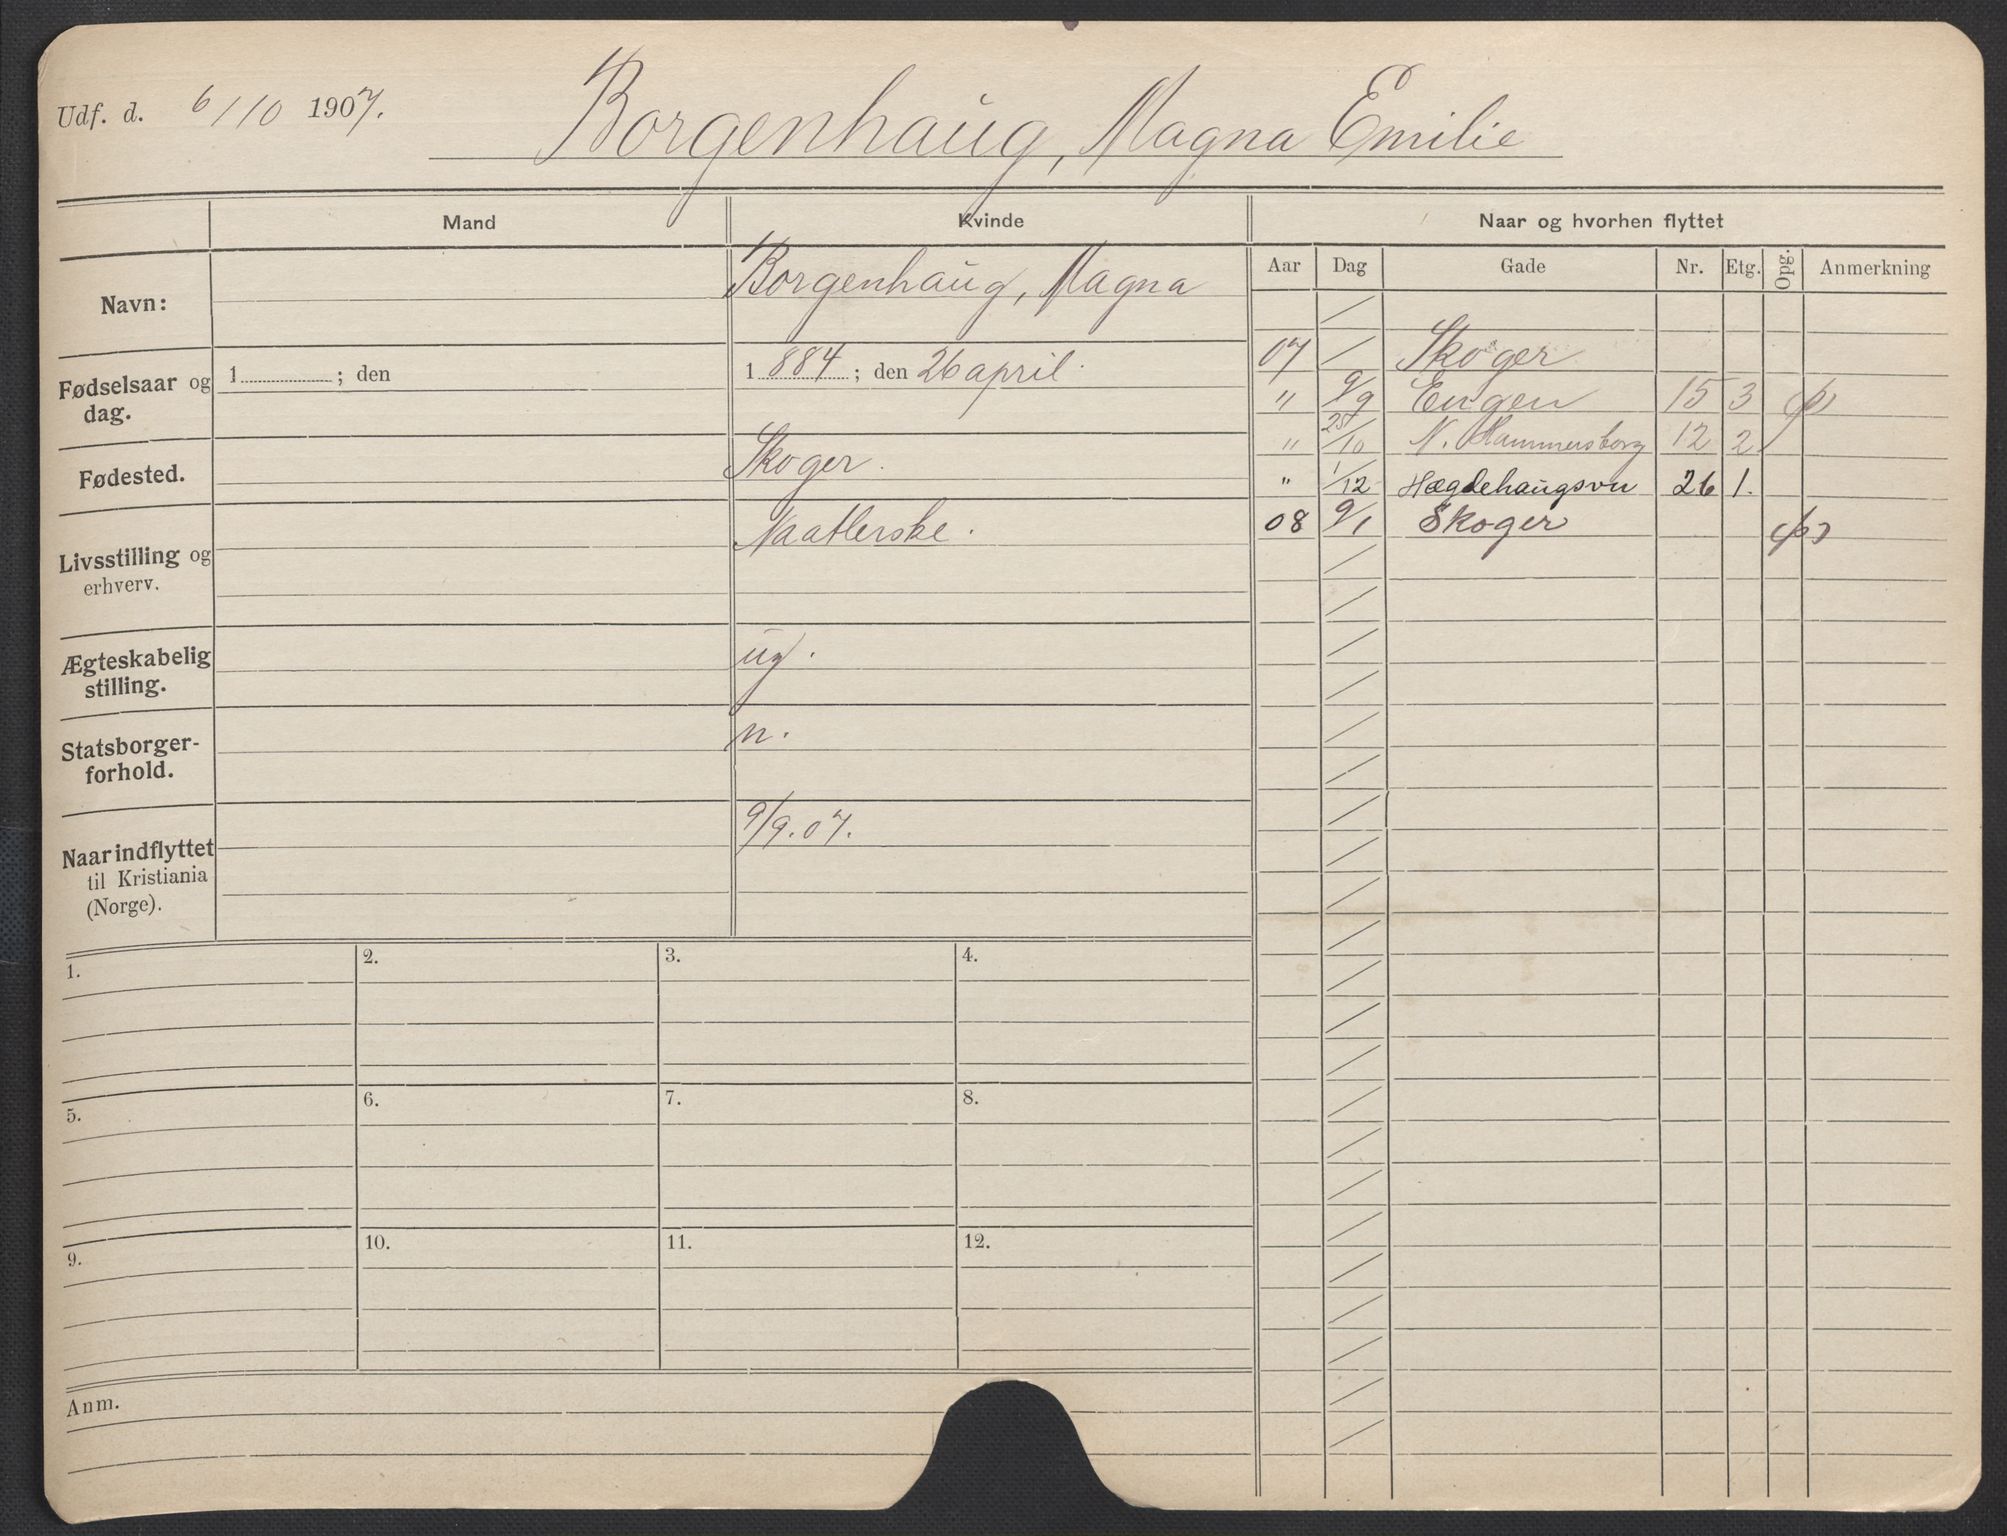 Udf. d. 6/10 1907.
Borgenhaug, Magna Emilie
Mand Kvinde Naar og hvorhen flyttet
Aar Dag Gade Nr. Etg. Opg. Anmerkning
Navn: Borgenhaug, Magna
Fødselsaar og dag. 1 ; den 1 884 ; den 26 april.
Fødested. Skoger.
Livsstilling og erhverv. Naatlerske.
Ægteskabelig stilling. ug.
Statsborger-forhold. n.
Naar indflyttet til Kristiania (Norge). 9/9.07.
07 / Skoger
" 9/9 Engen 15 3
" 25/10 N. Hammersborg 12 2
" 1/12 Hægdehaugsvn 26 1.
08 9/1 Skoger
1. 2. 3. 4.
5. 6. 7. 8.
9. 10. 11. 12.
Anm.